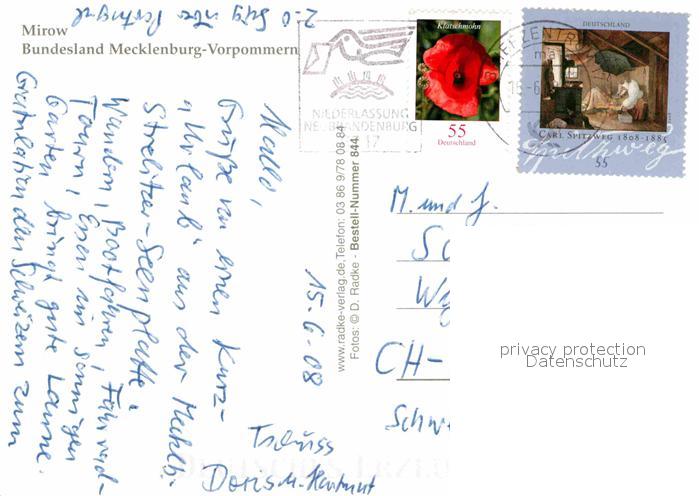 Mirow
Bundesland Mecklenburg-Vorpommern
15-6-08
Hallo,
Grüße von einen Kurz-
"Urlaub" aus der Mecklb.
Strelitzer-Seenplatte.
Wandern, Bootfahren, Fahrrad-
Touren, Essen im sonnigen
Garten bringt gute Laune.
Gratulation den Schweizern zum
2-0 Sieg über Portugal
Tschüss
Doris u. Hartmut
www.radke-verlag.de, Telefon: 03 86 9/78 08 84
Fotos: © D. Radke - Bestell-Nummer 844
NIEDERLASSUNG
NEUBRANDENBURG
17
Klatschmohn
55
Deutschland
BRIEFZENTRUM
DEUTSCHLAND
CARL SPITZWEG 1808-1885
Spitzweg
55
M. und J.
CH-
privacy protection
Datenschutz